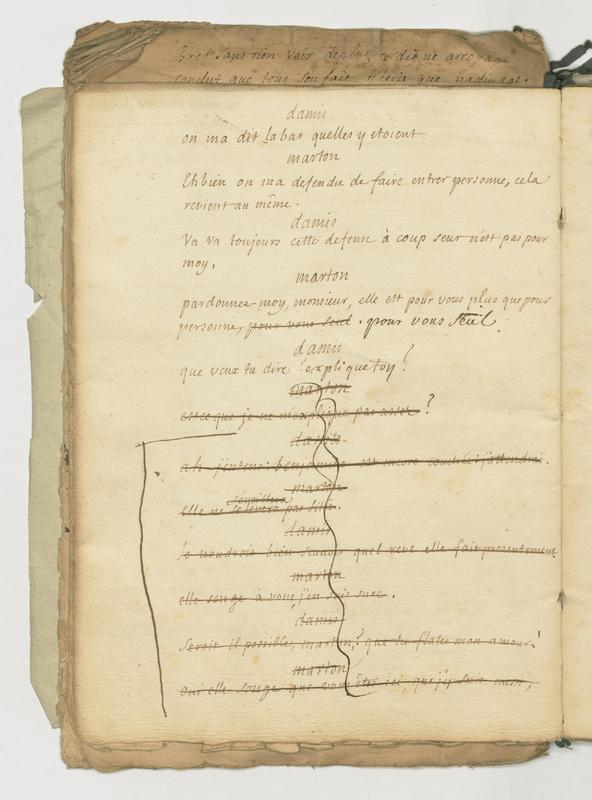 bref sans rien voir de plus ce digne areopage
conclut que tous son fait n'étoit que badinage.
damis
on ma dit labas quelles y etoient
marton
Eh bien on ma defendu de faire entrer personne, cela
revient au même.
damis
Va va toujours cette defense à coup seur n'est pas pour
moy.
marton
pardonnez-moy, monsieur, elle est pour vous plus que pour
personne, pour vous seul. pour vous seul
damis
que veux tu dire ? explique toy ?
marton
est ce que je ne m'explique pas assez ?
damis
ah j'entens: est encore couchée: j'attendrai.
marton
s'eveillera
elle ne se levera pas sitôt.
damis
Je voudrois bien scavoir quel reve elle fait presentement
marton
elle songe à vous, j'en suis sure.
damis
Seroit il possible, marton, que tu flates mon amour!
marton
oui elle songe que vous êtes ici, que j'y suis aussi,